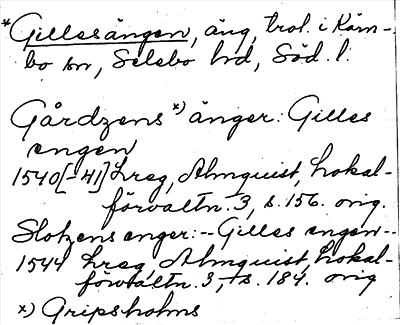 *Gillesängen, äng, trol. i Kärn-
bo sn, Selebo hd, Söd. l.
Gårdzens x) änger: Gilles
engen
1540[-41] hreg, Almquist, Lokal-
förvaltn. 3, s. 156. orig.
Slotzens enger: -- Gilles engen --
1544 hreg, Almquist, Lokal-
förvaltn. 3, s. 184. orig
x) Gripsholms